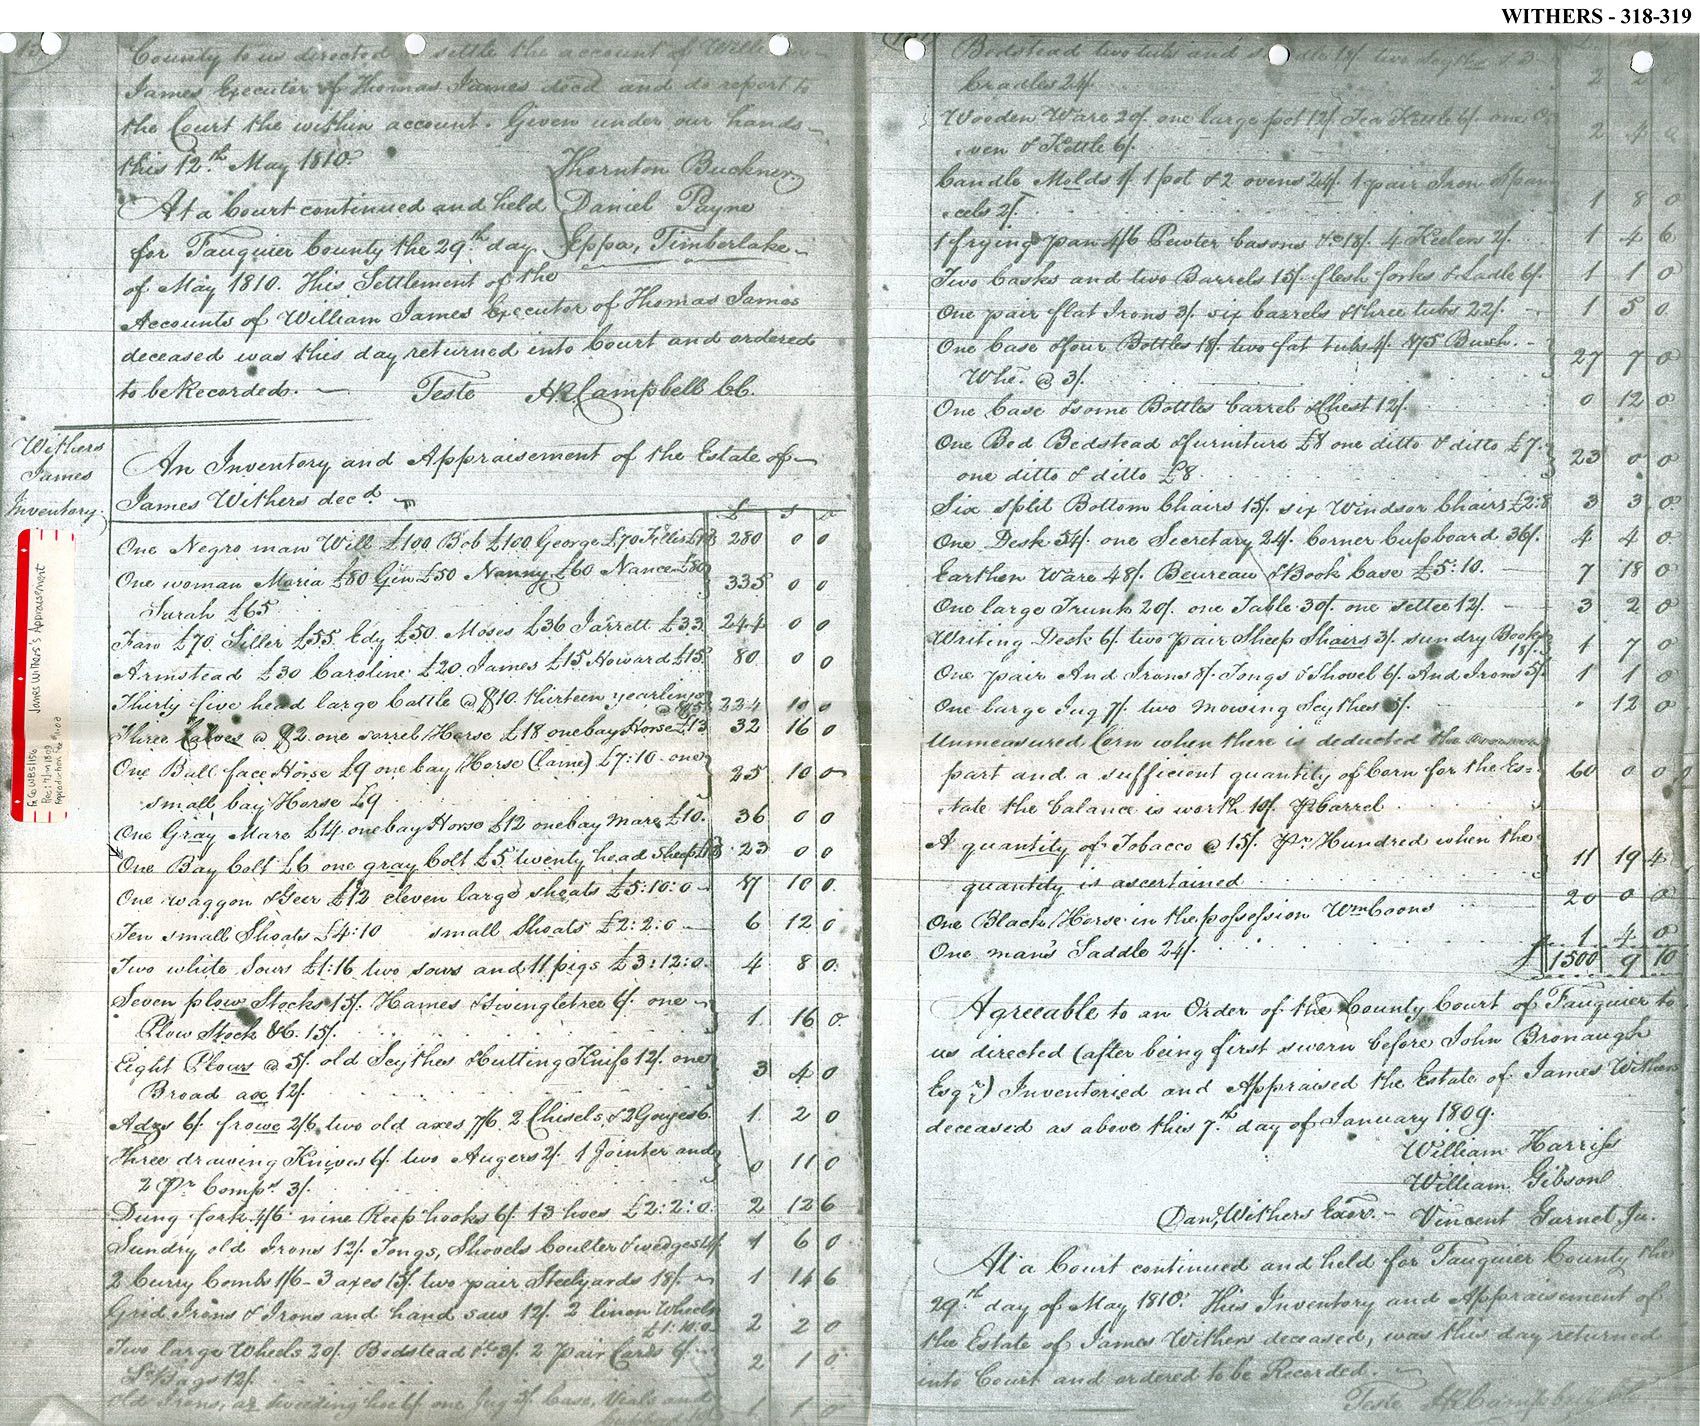 WITHERS - 318-319
County to us directed to settle the account of William
James Executor of Thomas James decd and do report to
the Court the within account. Given under our hands
this 12th May 1810.
Thornton Buckner
Daniel Payne
Eppa, Timberlake
At a Court continued and held
for Fauquier County the 29th day
of May 1810. This Settlement of the
Accounts of William James Executor of Thomas James
deceased was this day returned into Court and ordered
to be Recorded. Teste H. R. Campbell C.C.
Withers
James
Inventory
An Inventory and Appraisement of the Estate of
James Withers decd
£ S D
One Negro man Will £100 Bob £100 George £70 280 0 0
One woman Maria £80 Gin £50 Nanny £60 Nance £80 335 0 0
Sarah £65
Fan £70 Siller £55 Edy £50 Moses £36 Jarrett £33 244 0 0
Armstead £30 Caroline £20 James £15 Howard £15 80 0 0
Thirty five head large Cattle @ $10 thirteen yearlings 234 10 0
Three Calves @ $2 one sorrel Horse £18 one bay Horse £13 32 16 0
One Ball face Horse £9 one bay Horse (lame) £7:10 one 25 10 0
small bay Horse £9
One Gray Mare £14 one bay Horse £12 one bay mare £10 36 0 0
One Bay Colt £6 one gray Colt £5 twenty head Sheep £12 23 0 0
One waggon & Geer £12 eleven large shoats £5:10:0 17 10 0
Ten small Shoats £4:10 small Shoats £2:2:0 6 12 0
Two white Sows £1:16 two sows and 11 pigs £3:12:0 4 8 0
Seven plow Stocks 15/. Hames & Swingletree 6/. one 1 16 0
Plow Stock &c. 15/.
Eight Plows @ 5/. old Scythes & Cutting Knife 12/. one 3 4 0
Broad ax 12/.
Adzs 6/. frowe 2/6 two old axes 7/6 2 Chisels & 2 Gouges 6 1 2 0
Three drawing Knives 6/. two Augers 2/. 1 Jointer and 0 11 0
2 Pr Comps 3/.
Dung fork 4/6 nine Reep hooks 6/. 13 hoes £2:2:0 2 12 6
Sundry old Irons 12/. Tongs, Shovels Coulter & wedges 1 6 0
2 Curry Combs 1/6 - 3 axes 15/. two pair Steelyards 18/. 1 14 6
Grid Irons & Irons and hand saw 12/. 2 linen Wheels
£1:10:0 2 2 0
Two large Wheels 20/. Bedstead 3/. 2 pair Cards 6/. 2 1 0
Bags 12/.
old Irons, weeding hoe 6/. one Jug 3/. Case, Vials and 1 1 0
James Withers's Appraisement
Bedstead two tubs and 12/. two 2 2
Cradles 24/.
Wooden Ware 20/. one large pot 12/. Tea Kettle 6/. one 2 4
oven & Kettle 6/.
Candle Molds 1/. 1 pot & 2 ovens 24/. 1 pair Iron Span 1 8 0
cels 2/.
1 frying pan 4/6 Pewter basons &c 18/. 4 Keelers 2/. 1 4 6
Two Casks and two Barrels 15/. flesh forks & Ladle 6/. 1 1 0
One pair flat Irons 3/. six barrels & three tubs 22/. 1 5 0
One Case & four Bottles 18/. two fat tubs 4/. 175 Bush. 27 7 0
Whe. @ 3/.
One Case & some Bottles barrel & Chest 12/. 0 12 0
One Bed Bedstead & furniture £8 one ditto & ditto £7. 23 0 0
one ditto & ditto £8
Six split Bottom Chairs 15/. six Windsor Chairs £2:8 3 3 0
One Desk 54/. one Secretary 24/. Corner Cupboard 36/. 4 4 0
Earthen Ware 48/. Beureau & Book Case £5:10. 7 18 0
One large Trunk 20/. one Table 30/. one settee 12/. 3 2 0
Writing Desk 6/. two pair Sheep Shairs 3/. sundry Books 1 7 0
18/.
One pair And Irons 8/. Tongs & Shovel 6/. And Irons 5/. 1 1 0
One large Jug 7/. two mowing Scythes 5/. " 12 0
Unmeasured Corn when there is deducted the
part and a sufficient quantity of Corn for the Es= 60 0 0
tate the balance is worth 10/. pr barrel
A quantity of Tobacco @ 15/. Pr Hundred when the 11 19 4
quantity is ascertained
One Black Horse in the possession Wm Coons 20 0 0
One man's Saddle 24/. 1 4 0
£ 1500 9 10
Agreeable to an Order of the County Court of Fauquier to
us directed (after being first sworn before John Bronaugh
Esqr.) Inventoried and Appraised the Estate of James Withers
deceased as above this 7th day of January 1809.
William Harriss
William Gibson
Danl. Withers Exor. Vincent Garnet, Ju.
At a Court continued and held for Fauquier County the
29th day of May 1810. This Inventory and Appraisement of
the Estate of James Withers deceased, was this day returned
into Court and ordered to be Recorded.
Teste H R Campbell CC